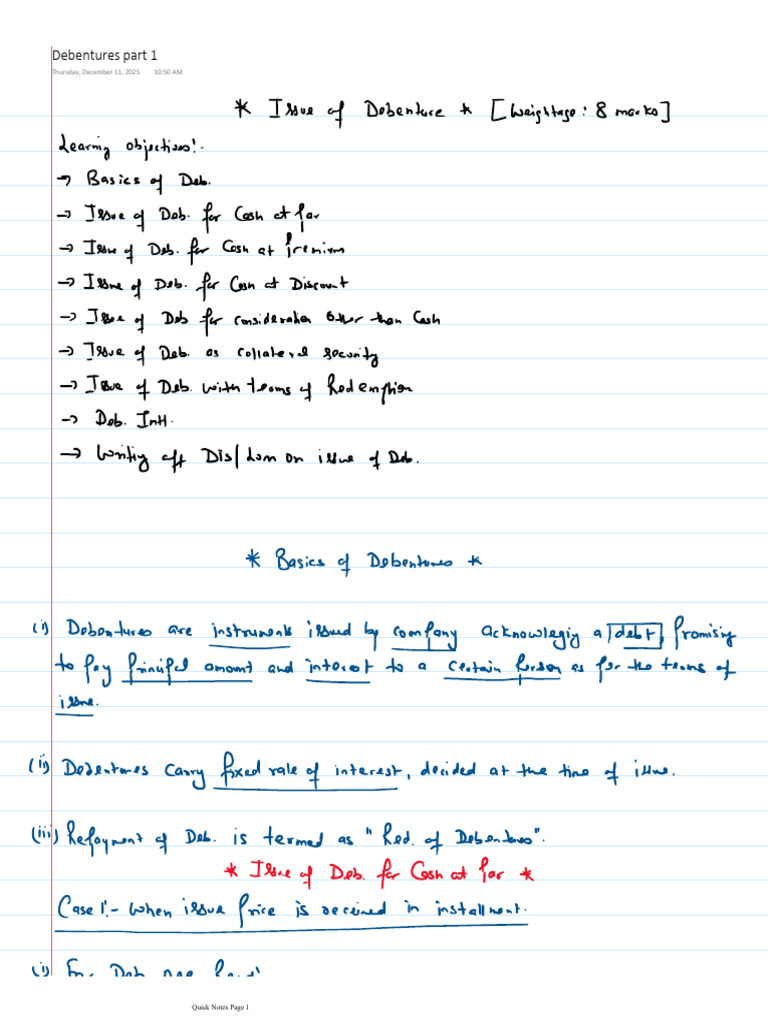 Debentures part 1
Thursday, December 11, 2025 10:50 AM
* Issue of Debenture * [Weightage: 8 marks]
Learning objectives:-
→ Basics of Deb.
→ Issue of Deb. for Cash at Par
→ Issue of Deb. for Cash at Premium
→ Issue of Deb. for Cash at Discount
→ Issue of Deb for consideration other than Cash
→ Issue of Deb. as collateral security
→ Issue of Deb. with terms of Redemption
→ Deb. Intt.
→ Writing off Dis/Loss on issue of Deb.
* Basics of Debentures *
(i) Debentures are instruments issued by company acknowlegiy a debt, Promising
to pay principal amount and interest to a certain person as per the terms of
issue.
(ii) Debentures carry fixed rate of interest, decided at the time of issue.
(iii) Repayment of Deb. is termed as "Red. of Debentures".
* Issue of Deb. for Cash at Par *
Case 1:- When issue Price is received in installment.
(i) For Deb
Quick Notes Page 1